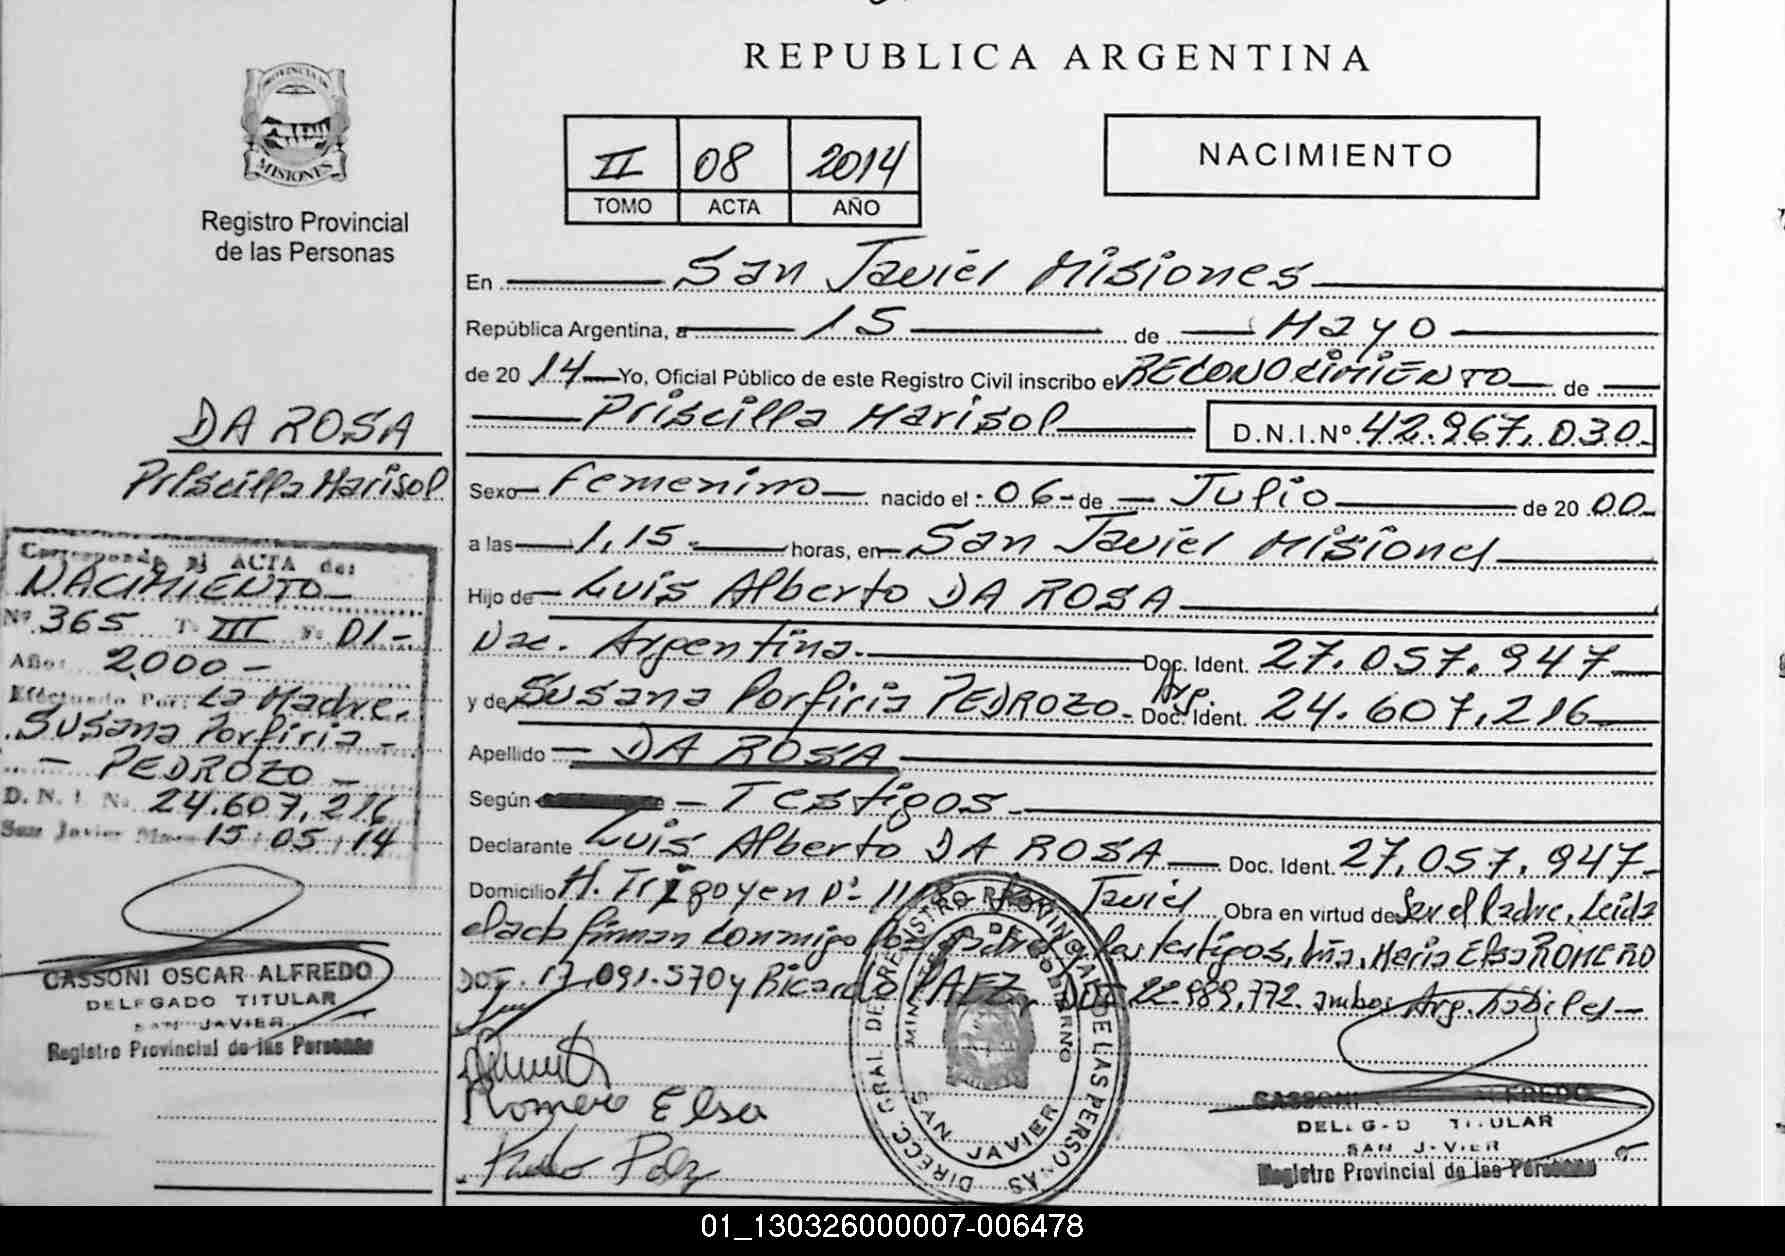 REPUBLICA ARGENTINA
PROVINCIA DE
MISIONES
Registro Provincial
de las Personas
II 08 2014
TOMO ACTA AÑO
NACIMIENTO
En San Javier Misiones
República Argentina, a 15 de Mayo
de 20 14 Yo, Oficial Público de este Registro Civil inscribo el RECONOCIMIENTO de
Priscilla Marisol D.N.I.Nº 42.967.030
Sexo Femenino nacido el : 06 de Julio de 20 00
a las 1,15 horas, en San Javier Misiones
Hijo de Luis Alberto DA ROSA
Nac. Argentina. Doc. Ident. 27.057.947
y de Susana Porfiria PEDROZO Arg. Doc. Ident. 24.607.216
Apellido DA ROSA
Según Testigos
Declarante Luis Alberto DA ROSA Doc. Ident. 27.057.947
Domicilio H. Irigoyen Nº Javier Obra en virtud de Ser el Padre. Leida
el acta firman conmigo los testigos, Maria Elsa ROMERO
17.091.570 y Ricardo PAEZ 22.989.772. ambos Arg. hábiles
Romero Elsa
DA ROSA
Priscilla Marisol
Corresponde al ACTA de:
NACIMIENTO
Nº 365 T. III F. 01
Año: 2000
Efectuado Por: La Madre.
Susana Porfiria
PEDROZO
D. N. I. Nº 24.607.216
San Javier Mnes 15 05 14
CASSONI OSCAR ALFREDO
DELEGADO TITULAR
SAN JAVIER
Registro Provincial de las Personas
DIRECC. GRAL. DEL REGISTRO PROVINCIAL DE LAS PERSONAS
MINIST. DE GOBIERNO
SAN JAVIER
CASSONI ALFREDO
DELEGADO TITULAR
SAN JAVIER
Registro Provincial de las Personas
01_130326000007-006478